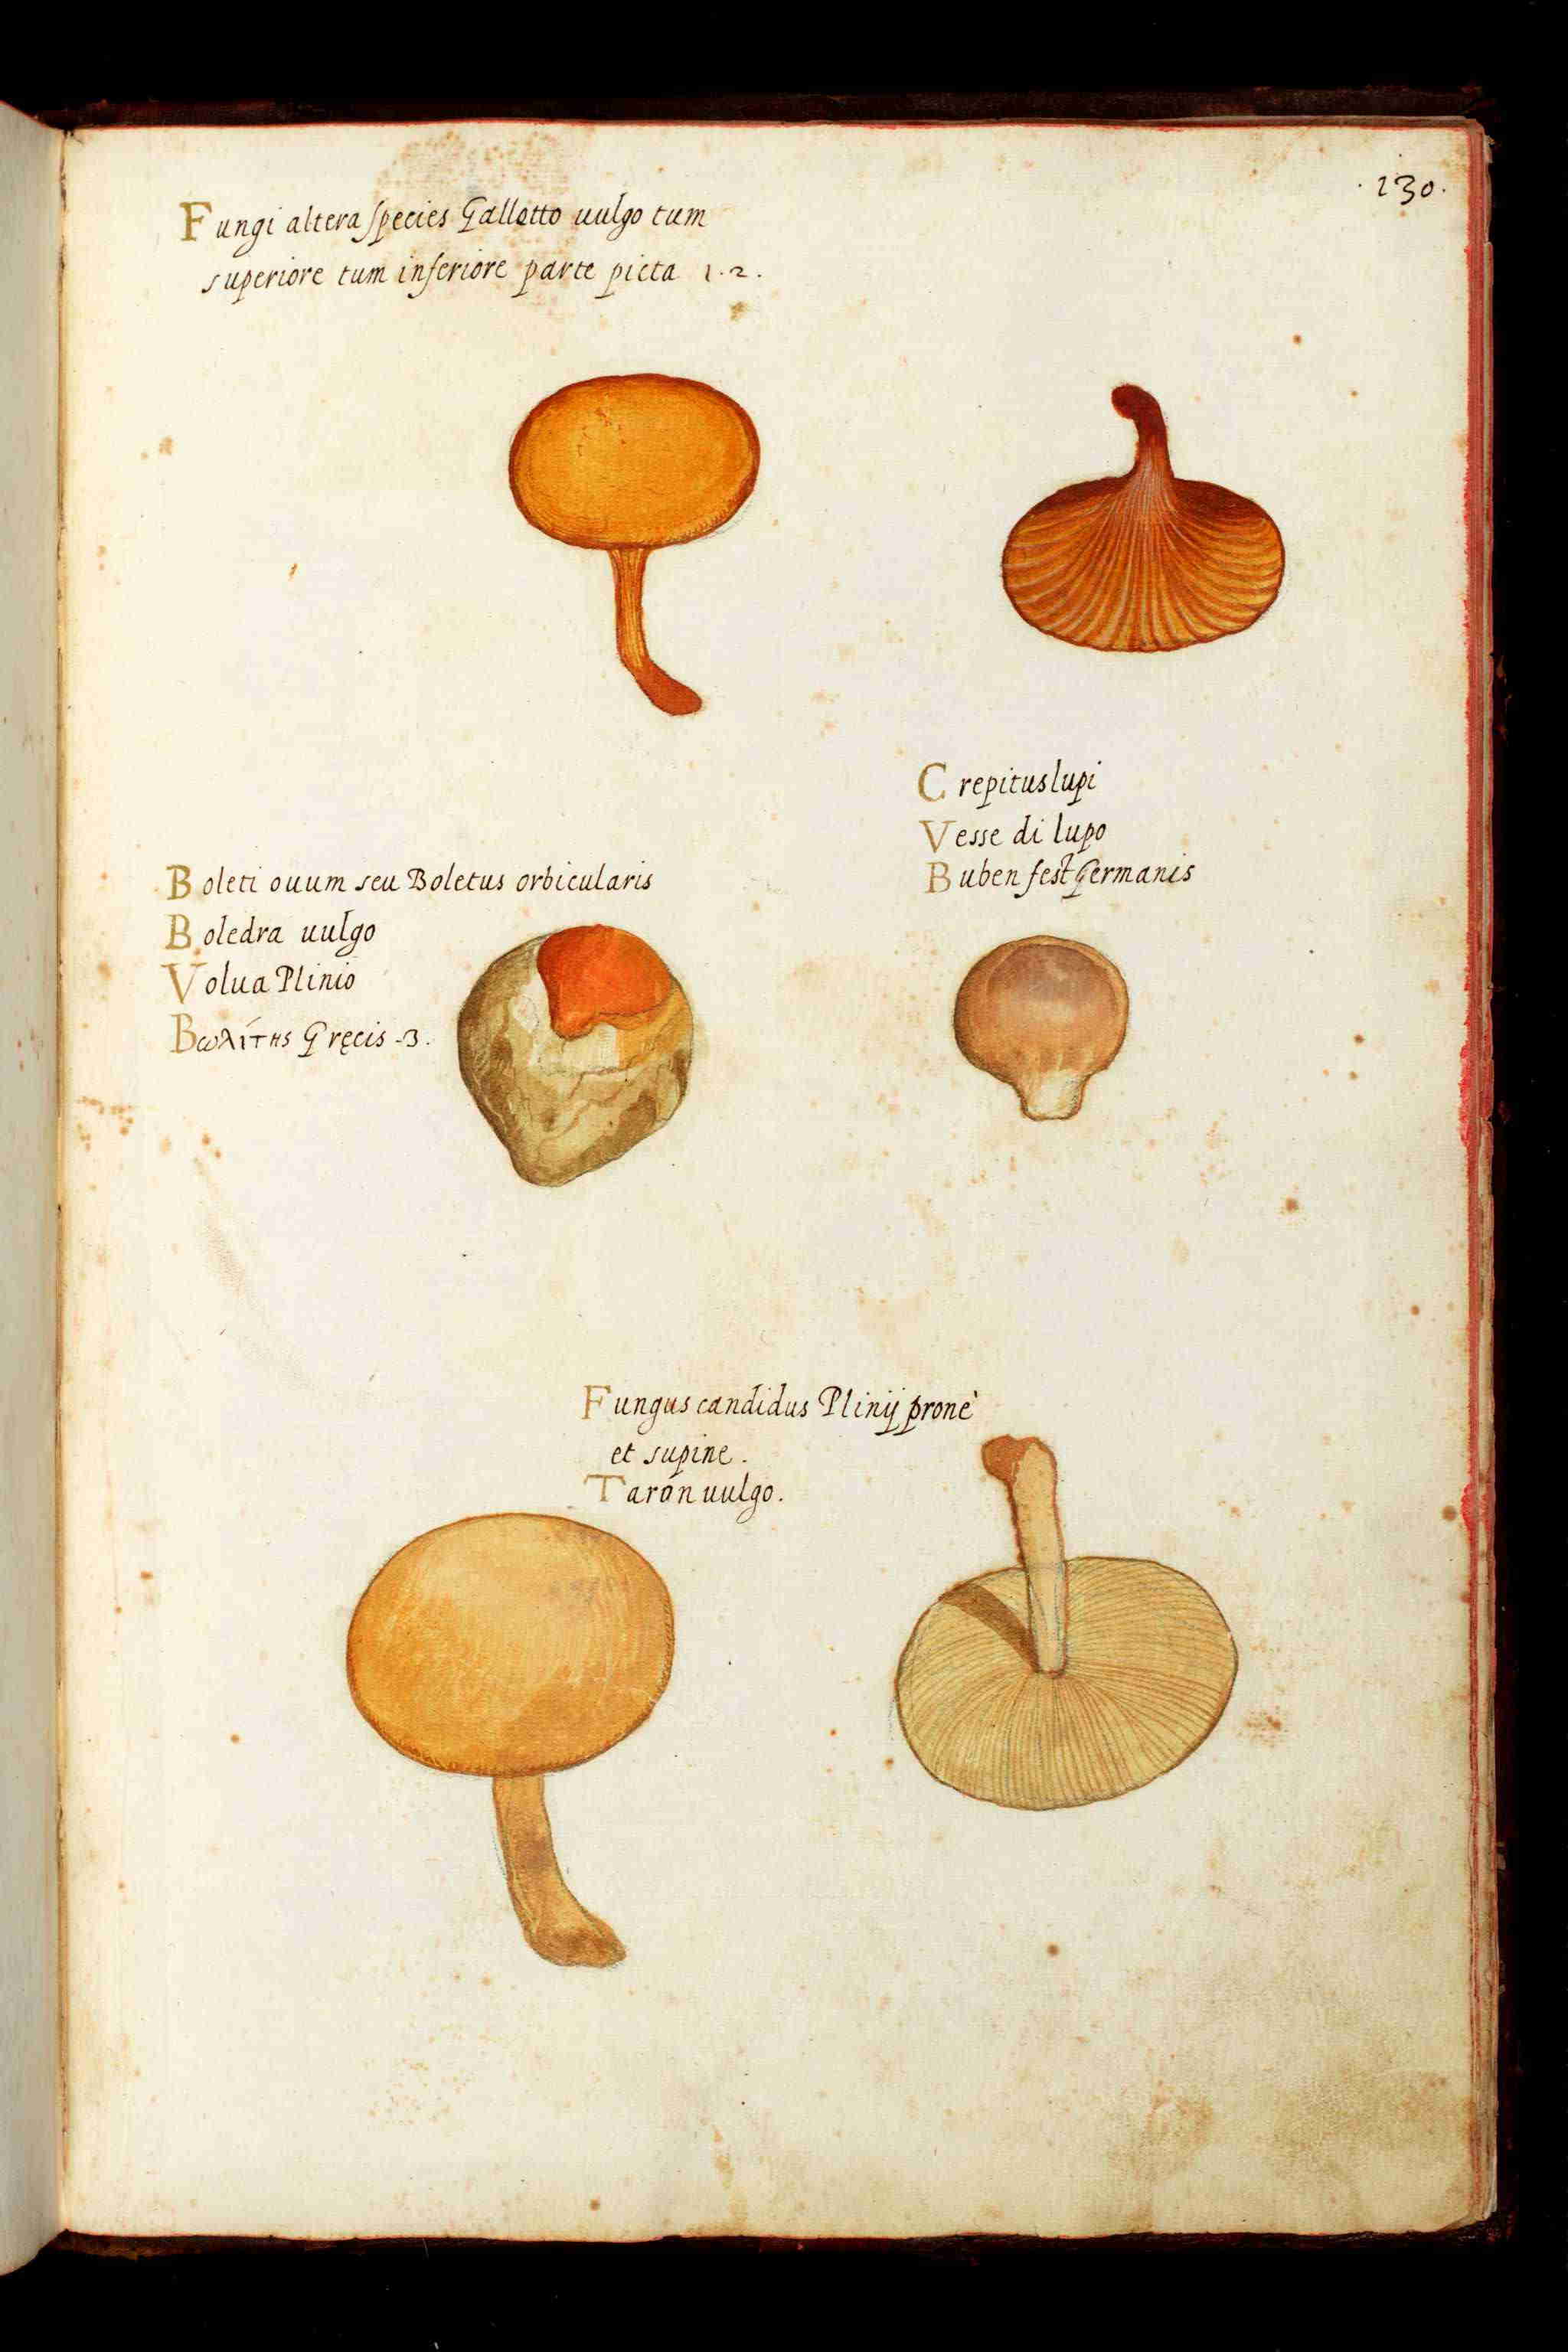 .130.
Fungi altera species Galletto uulgo tum
superiore tum inferiore parte picta 1.2.
Crepitus lupi
Vesse di lupo
Bubenfest Germanis
Boleti ouum seu Boletus orbicularis
Boledra uulgo
Volua Plinio
Βωλίτης Gręcis -3.
Fungus candidus Plinij pronè
et supine.
Tarón uulgo.